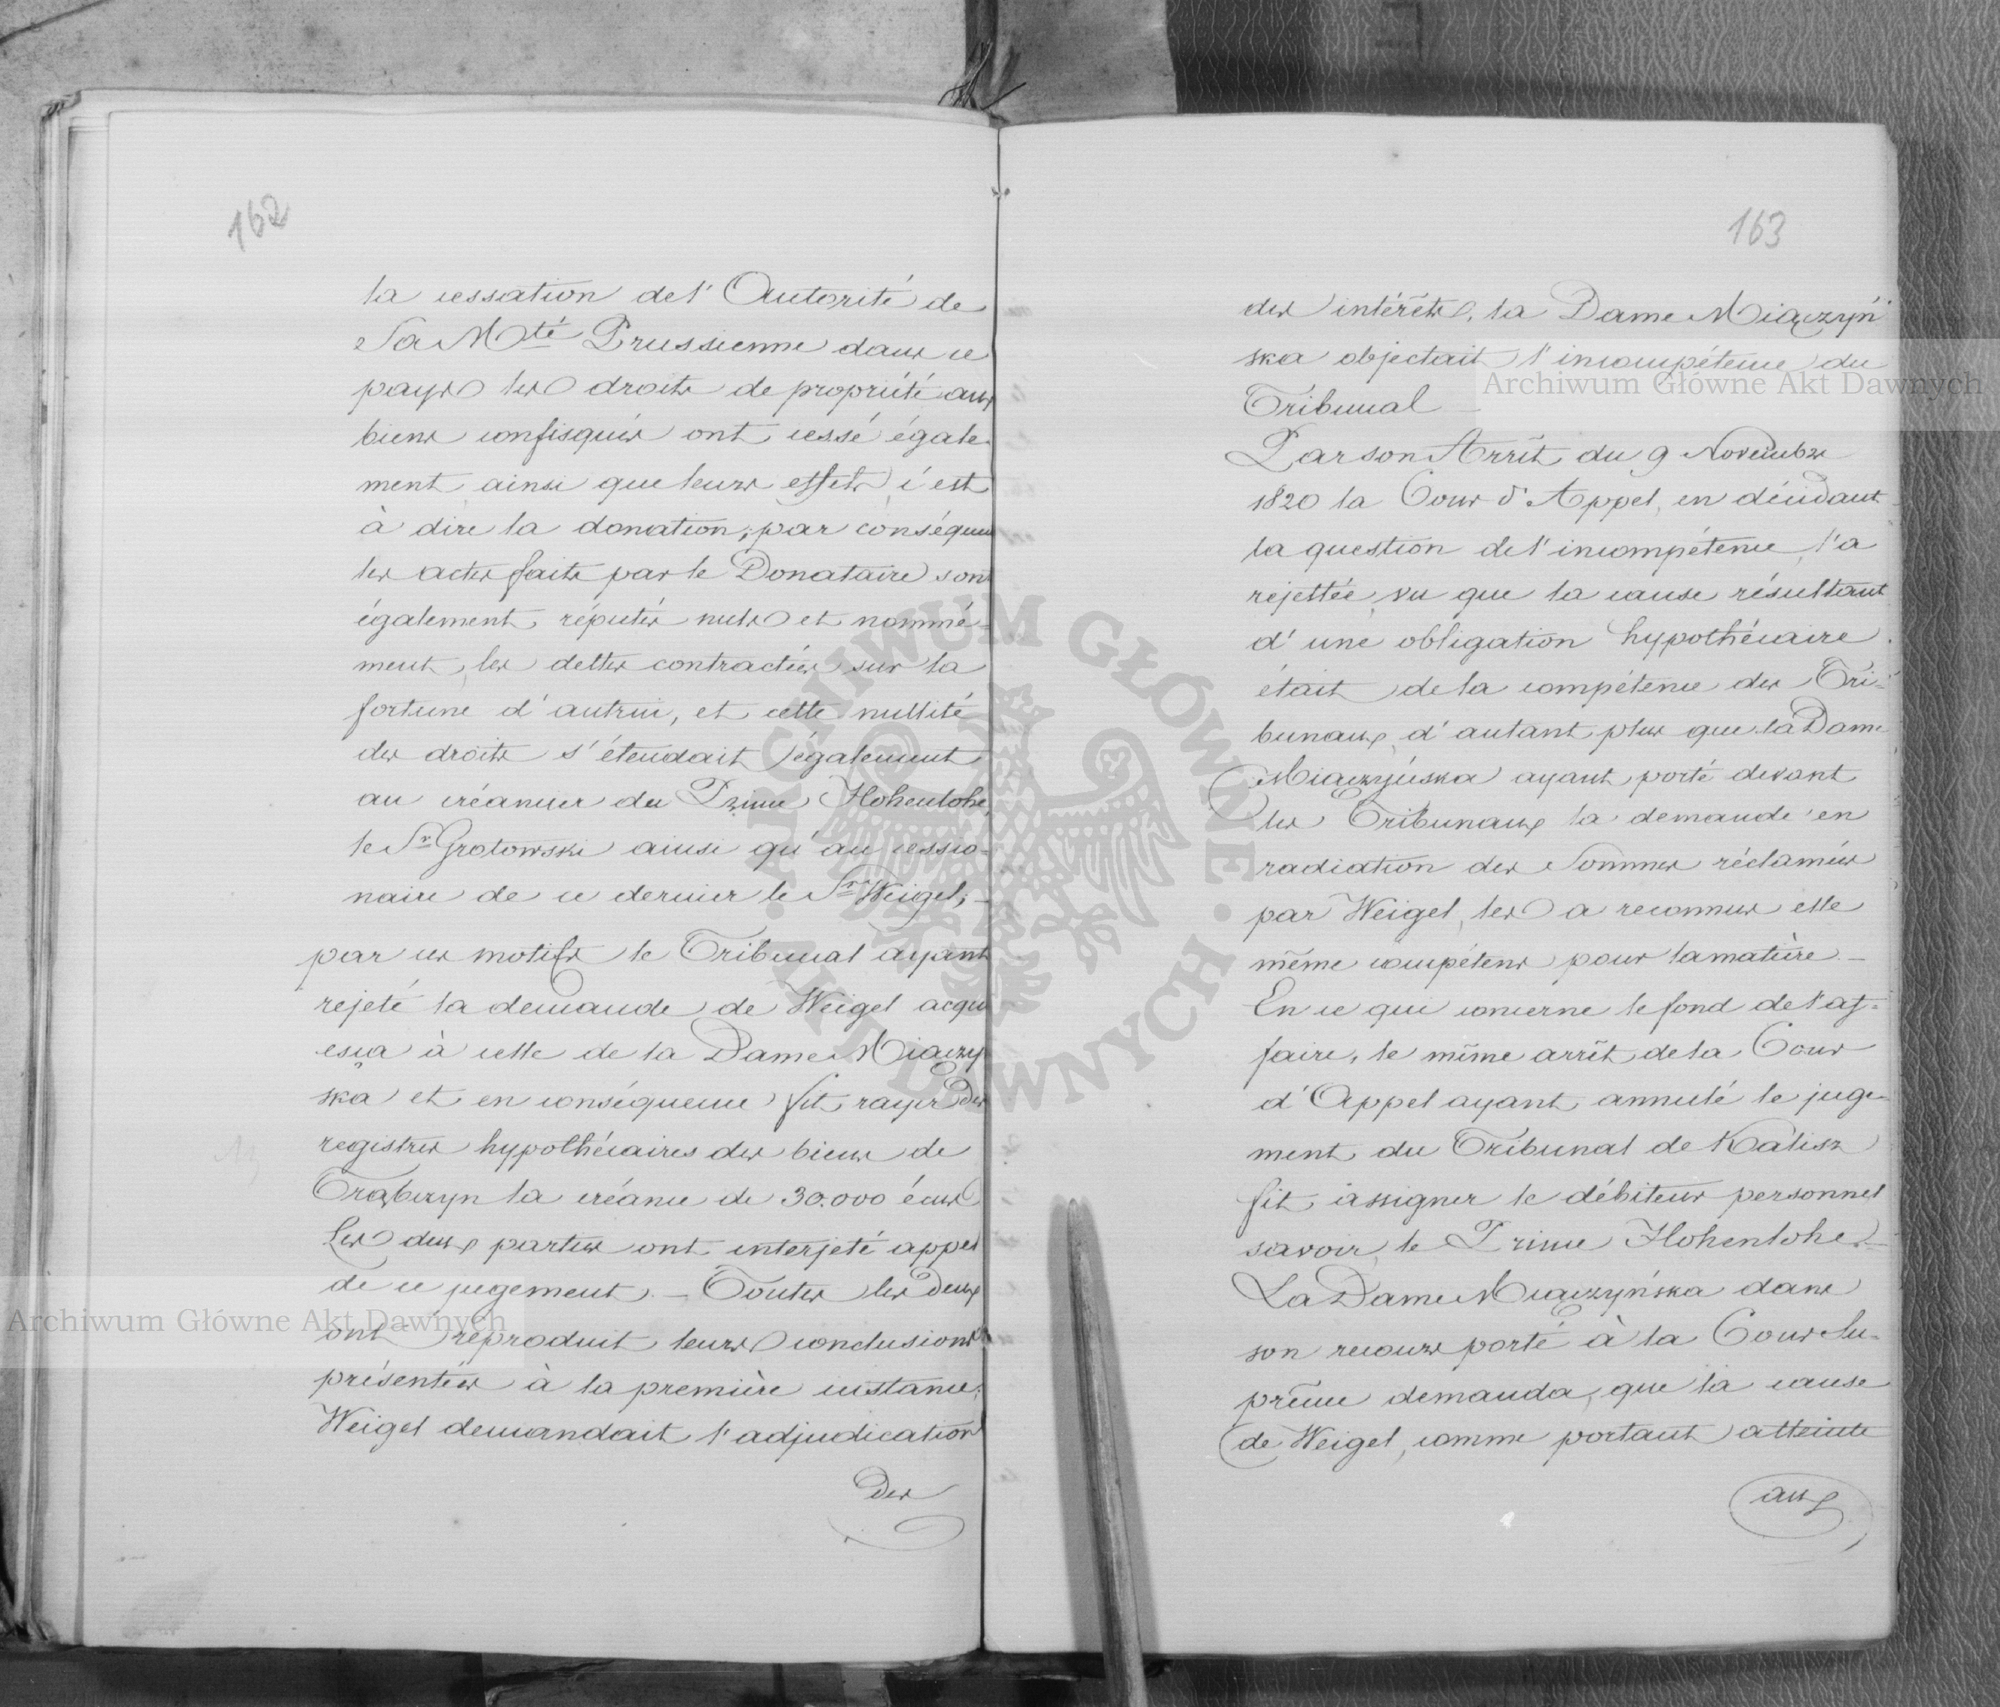 162
la cessation de l'Autorité de
Sa Mté Prussienne dans ce
pays les droits de propriété aux
biens confisqués ont cessé égale-
ment ainsi que leurs effets c'est
à dire la donation; par conséquen
les actes faits par le Donataire son
également réputés nuls et nommé-
ment les dettes contractées sur la
fortune d'autrui, et cette nullité
des droits s'étendait également
au créancier du Prince Hohenlohe,
le Sr Grotowski ainsi qu'au cessio-
naire de ce dernier le Sr Weigel; -
par ces motifs le Tribunal ayant
rejeté la demande de Weigel acqui
esça à celle de la Dame Miączy
ska et en conséquence fit rayer des
registres hypothécaires des biens de
Trąbczyn la créance de 30.000 écus
Les deux parties ont interjeté appel
de ce jugement. - Toutes les deux
ont reproduit leurs conclusions
présentées à la première instance;
Weigel demandait l'adjudication
des
163
des intérêts, la Dame Miączyń
ska objectait l'incompétence du
Tribunal -
Par son Arrêt du 9 Novembre
1820 la Cour d'Appel, en décidant
la question de l'incompétence, l'a
rejettée, vu que la cause résultant
d'une obligation hypothécaire
était de la compétence des Tri-
bunaux, d'autant plus que la Dame
Miączyńska ayant porté devant
les Tribunaux la demande en
radiation des Sommes réclamées
par Weigel, les a reconnus elle
même compétens pour la matière -
En ce qui concerne le fond de l'af-
faire, le même arrêt de la Cour
d'Appel ayant annulé le juge-
ment du Tribunal de Kalisz
fit assigner le débiteur personnel
savoir, le Prince Hohenlohe. -
La Dame Miączyńska dans
son recours porté à la Cour Su-
prême demanda, que la cause
de Weigel, comme portant atteinte
aux
Archiwum Główne Akt Dawnych
Archiwum Główne Akt Dawnych
ARCHIWUM GŁÓWNE AKT DAWNYCH